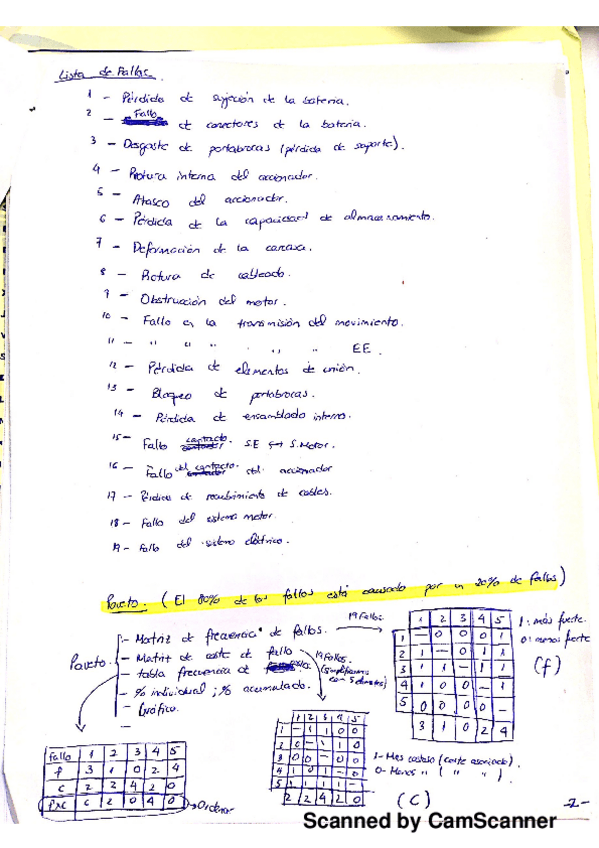 Lista de fallas.
1 - Pérdida de sujeción de la batería.
2 - Fallo de conectores de la batería.
3 - Desgaste de portabrocas (pérdida de soporte).
4 - Rotura interna del accionador.
5 - Atasco del accionador.
6 - Pérdida de la capacidad de almacenamiento.
7 - Deformación de la carcasa.
8 - Rotura de cableado.
9 - Obstrucción del motor.
10 - Fallo en la transmisión del movimiento.
11 - " " " " " " EE.
12 - Pérdida de elementos de unión.
13 - Bloqueo de portabrocas.
14 - Pérdida de ensamblado interno.
15 - Fallo contacto S.E ↔ S.Motor.
16 - Fallo del contacto del accionador
17 - Pérdida de recubrimiento de cables.
18 - Fallo del sistema motor.
19 - Fallo del sistema eléctrico.
Pareto. (El 80% de los fallos está causado por un 20% de fallos)
Pareto.
- Matriz de frecuencia de fallos. 19 Fallos
- Matriz de coste de fallo 19 Fallos (simplificamos con 5 elementos)
- tabla frecuencia de fallos.
- % individual ; % acumulado.
- Gráfico.
1 2 3 4 5
1 - 0 0 0 1
2 1 - 0 1 1
3 1 1 - 1 1
4 1 0 0 - 1
5 0 0 0 0 -
3 1 0 2 4
1: más fuerte.
0: menos fuerte
(f)
fallo 1 2 3 4 5
f 3 1 0 2 4
c 2 2 4 2 0
fxc 6 2 0 4 0 → Ordenar
1 2 3 4 5
1 - 1 1 0 0
2 0 - 1 1 0
3 0 0 - 0 0
4 1 0 1 - 0
5 1 1 1 1 -
2 2 4 2 0
1 - Mas costoso (coste asociado).
0 - Menos " ( " " )
(C)
-2-
Scanned by CamScanner